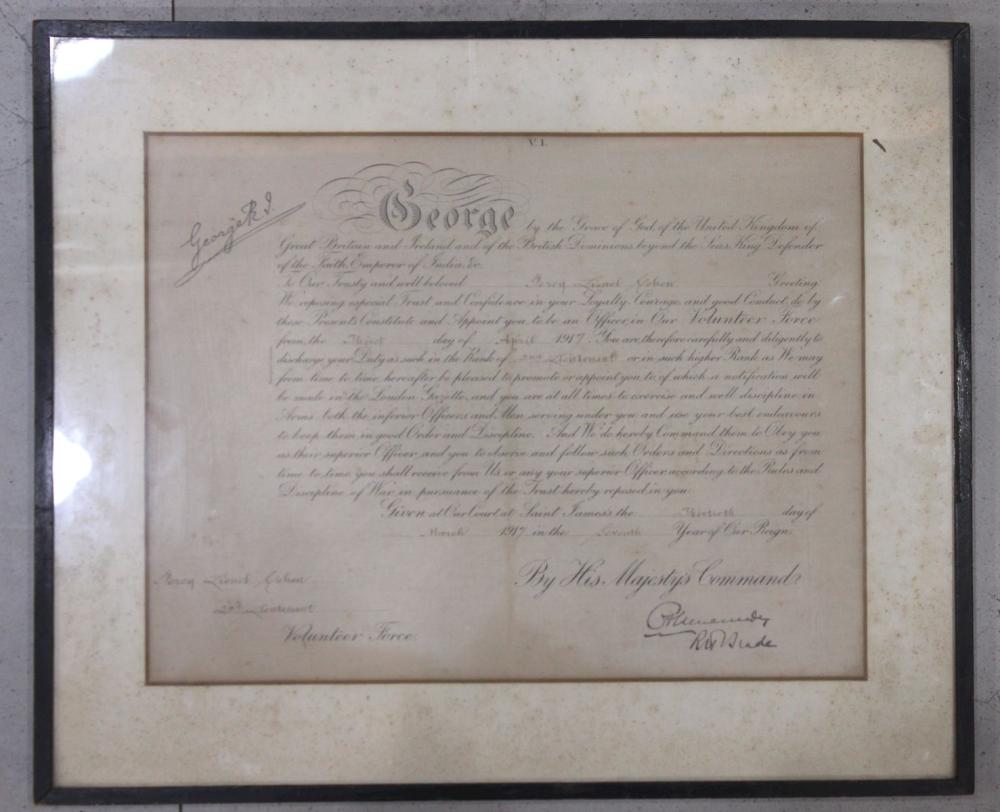 V.I.
George R.I.
George by the Grace of God, of the United Kingdom of
Great Britain and Ireland and of the British Dominions beyond the Seas, King, Defender
of the Faith, Emperor of India, &c.
To Our Trusty and well beloved Percy Lionel Cohen Greeting
We, reposing especial Trust and Confidence in your Loyalty, Courage, and good Conduct, do by
these Presents Constitute and Appoint you to be an Officer in Our Volunteer Force
from the First day of April 1917. You are therefore carefully and diligently to
discharge your Duty as such in the Rank of 2nd Lieutenant or in such higher Rank as We may
from time to time hereafter be pleased to promote or appoint you to, of which a notification will
be made in the London Gazette, and you are at all times to exercise and well discipline in
Arms both the inferior Officers and Men serving under you and use your best endeavours
to keep them in good Order and Discipline. And We do hereby Command them to Obey you
as their superior Officer, and you to observe and follow such Orders and Directions as from
time to time you shall receive from Us, or any your superior Officer, according to the Rules and
Discipline of War, in pursuance of the Trust hereby reposed in you.
Given at Our Court at Saint James's the Thirtieth day of
March 1917 in the Seventh Year of Our Reign.
By His Majesty's Command.
Percy Lionel Cohen
2nd Lieutenant
Volunteer Force.
RHBrade